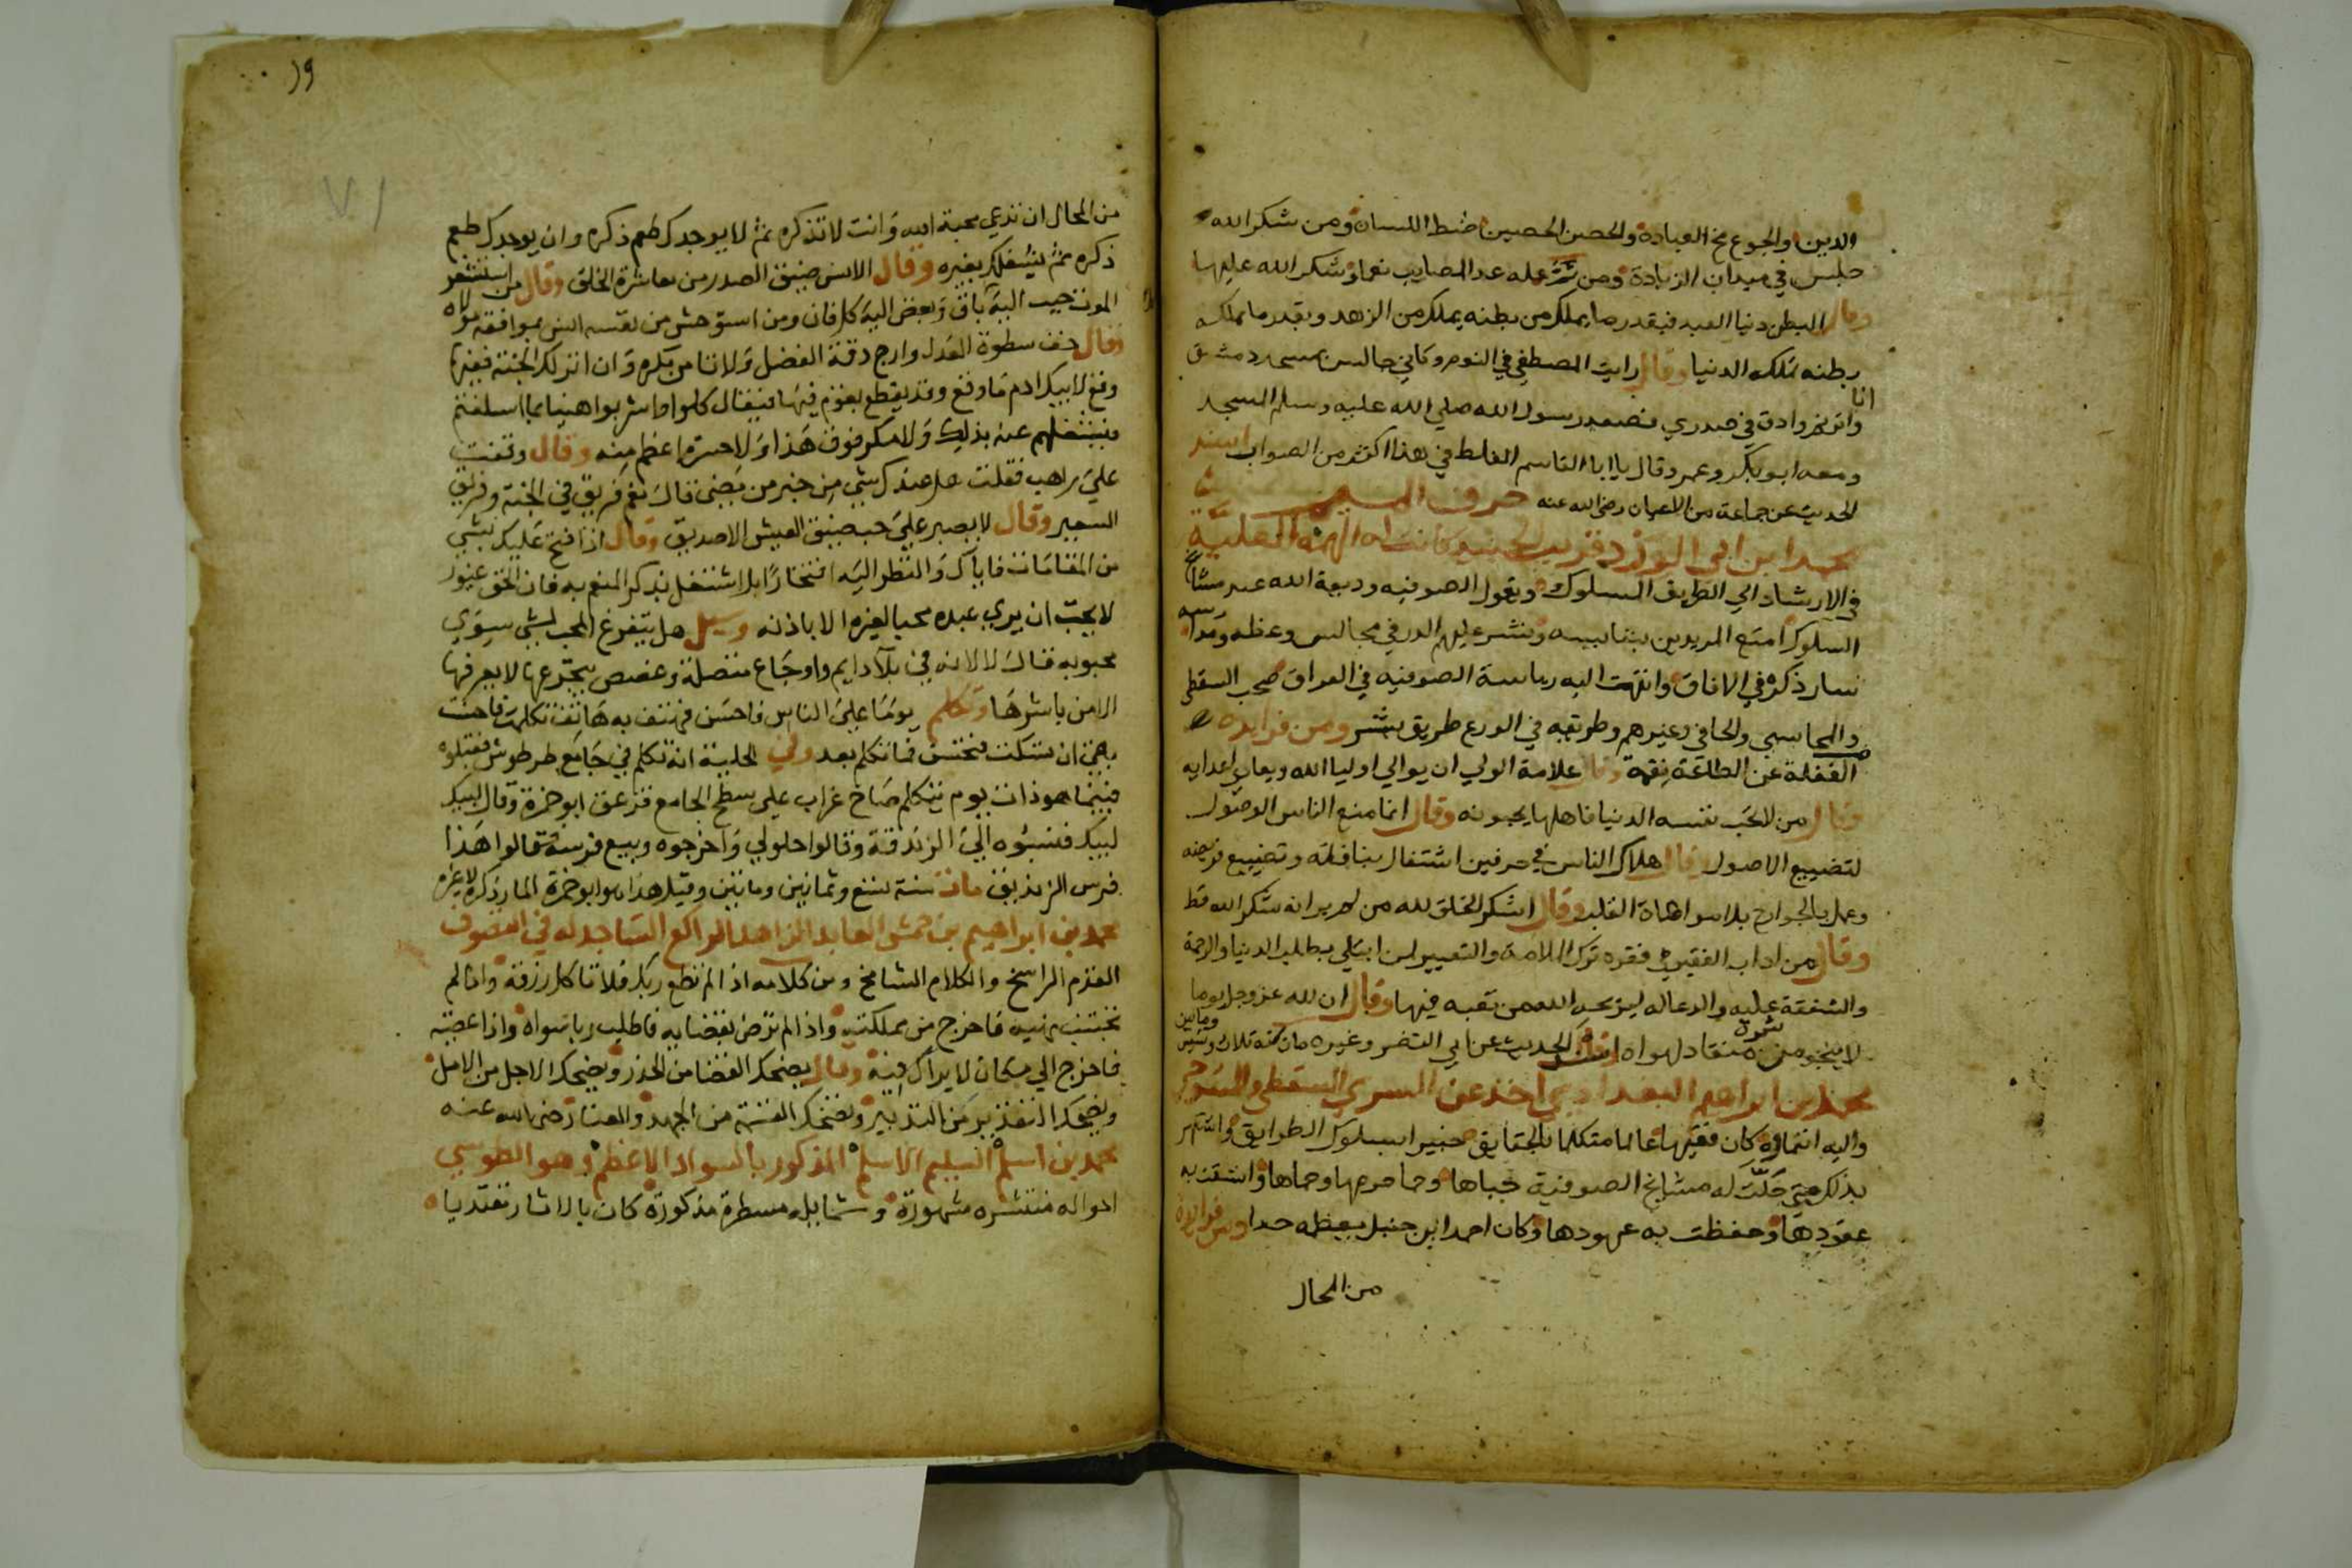 الدين والجوع مخ العبادة والحصن الحصين ضبط اللسان ومن شكر الله
جلس في ميدان الزيادة ومن عد المصايب نعما وشكر الله عليها
وقال البطن دنيا العبد فبقدر ما يملك من بطنه يملك من الزهد وبقدر ما تملكه
بطنه تملكه الدنيا وقال رايت المصطفى في النوم وكاني جالس بمسجد دمشق
انا
وادق في صدري فصعد رسول الله صلي الله عليه وسلم المسجد
ومعه ابو بكر وعمر وقال يا ابا القاسم الغلط في هذا اكثر من الصواب اسند
الحديث عن جماعة من الاعيان رضي الله عنه حرف الميم
محمد ابن ابي الورد قريب الجنيد كانت له الهمة العلية
في الارشاد الي الطريق المسلوك ويقول الصوفيه وديعة الله عند مشايخ
السلوك امتع المريدين ونشر عليهم الدر في مجالس وعظه
فسار ذكره في الافاق وانتهت اليه رياسة الصوفيه في العراق صحب السقطي
والمحاسبي والحافي وغيرهم وطريقه في الورع طريق بشر ومن فوايده
الغفلة عن الطاعة نقمة وقال علامة الولي ان يوالي اوليا الله ويعادي اعدايه
وقال من لا تحب نفسه الدنيا فاهلها يحبونه وقال انما منع الناس الوصول
لتضييع الاصول وقال هلاك الناس في حرفين اشتغال بنافلة وتضييع فريضه
وعمل بالجوارح بلا مواطاة القلب وقال اشكر الخلق لله من لم ير انه شكر الله قط
وقال من اداب الفقير في فقره ترك الملامة والتعيير لمن ابتلي بطلب الدنيا والرحمة
والشفقة عليه والدعا له ليريحه الله من تعبه فيها وقال ان لله عز وجل يوما
لا ينجو من شره منقاد لهواه اسند الحديث عن ابي النضر وغيره مات سنة ثلاث وستين
ومايتين
محمد بن ابراهيم البغدادي اخذ عن السري السقطي
واليه انتماوه كان فقيها عالما متكلما بالحقايق خبيرا بسلوك الطرايق واشتهر
بذلك حتي حلت له مشايخ الصوفية حباها وحما حومها وحماها واتسقت به
عقودها وحفظت به عهودها وكان احمد ابن حنبل يعظمه جدا ومن فوايده
من المحال
١٩
٧١
من المحال ان تدعي محبة الله وانت لا تذكره ثم لا يوجدك طعم ذكره وان يوجدك طعم
ذكره ثم يشغلك بغيره وقال الانس ضيق الصدر من معاشرة الخلق وقال من استشعر
الموت حبب اليه كل باق وبغض اليه كل فان ومن استوحش من نفسه انس بموافقة مولاه
وقال خف سطوة العدل وارج دقة الفضل ولا تامن مكره وان انزلك الجنة ففيها
وقع لابيك ادم ما وقع وقد يقطع بقوم فيها فيقال كلوا واشربوا هنيا بما اسلفتم
فيشغلهم عنه بذلك ولا مكر فوق هذا ولا حسرة اعظم منه وقال وقفت
علي راهب فقلت هل عندك شي من خبر من مضى قال نعم فريق في الجنة وفريق في
السعير وقال لا يصبر علي حب ضيق العيش الا صديق وقال اذا فتح عليك بشي
من المقامات فاياك والنظر اليه افتخارا بل اشتغل بذكر المنعم به فان الحق غيور
لا يحب ان يري عبده محبا لغيره الا باذنه وسيل هل يتفرغ المحب لشي سوي
محبوبه فقال لا لانه في بلا دايم واوجاع متصلة وغصص يتجرعها لا يعرفها
الا من باشرها وتكلم يوما علي الناس فاحسن فهتف به هاتف تكلمت فاحسنت
بقي ان تسكت فتحسن فما تكلم بعد وفي الحلية انه تكلم في جامع طرطوش فقبلوه
فبينما هو ذات يوم يتكلم صاح غراب علي سطح الجامع فزعق ابو حمزة وقال لبيك
لبيك فنسبوه الي الزندقة وقالوا حلولي واخرجوه وبيع فرسه قالوا هذا
فرس الزنديق مات سنة تسع وثمانين ومايتين وقيل هذا هو ابو حمزة المار ذكره لا غيره
محمد بن ابراهيم بن حمش العابد الزاهد الراكع الساجد له في التصوف
القدم الراسخ والكلام الشامخ ومن كلامه اذا لم تطع ربك فلا تاكل رزقه واذا لم
تجتنب نهيه فاخرج من مملكته واذا لم ترض بقضايه فاطلب ربا سواه واذا عصيته
فاخرج الي مكان لا يراك فيه وقال يضحك القضا من الحذر ويضحك الاجل من الامل
ويضحك التقدير من التدبير وتضحك القسمة من الجهد والعنا رضي الله عنه
محمد بن اسلم السليم الاسلم المذكور بالسواد الاعظم وهو الطوسي
احواله منتشره مشهورة وشمايله مسطرة مذكورة كان بالاثار مقتديا